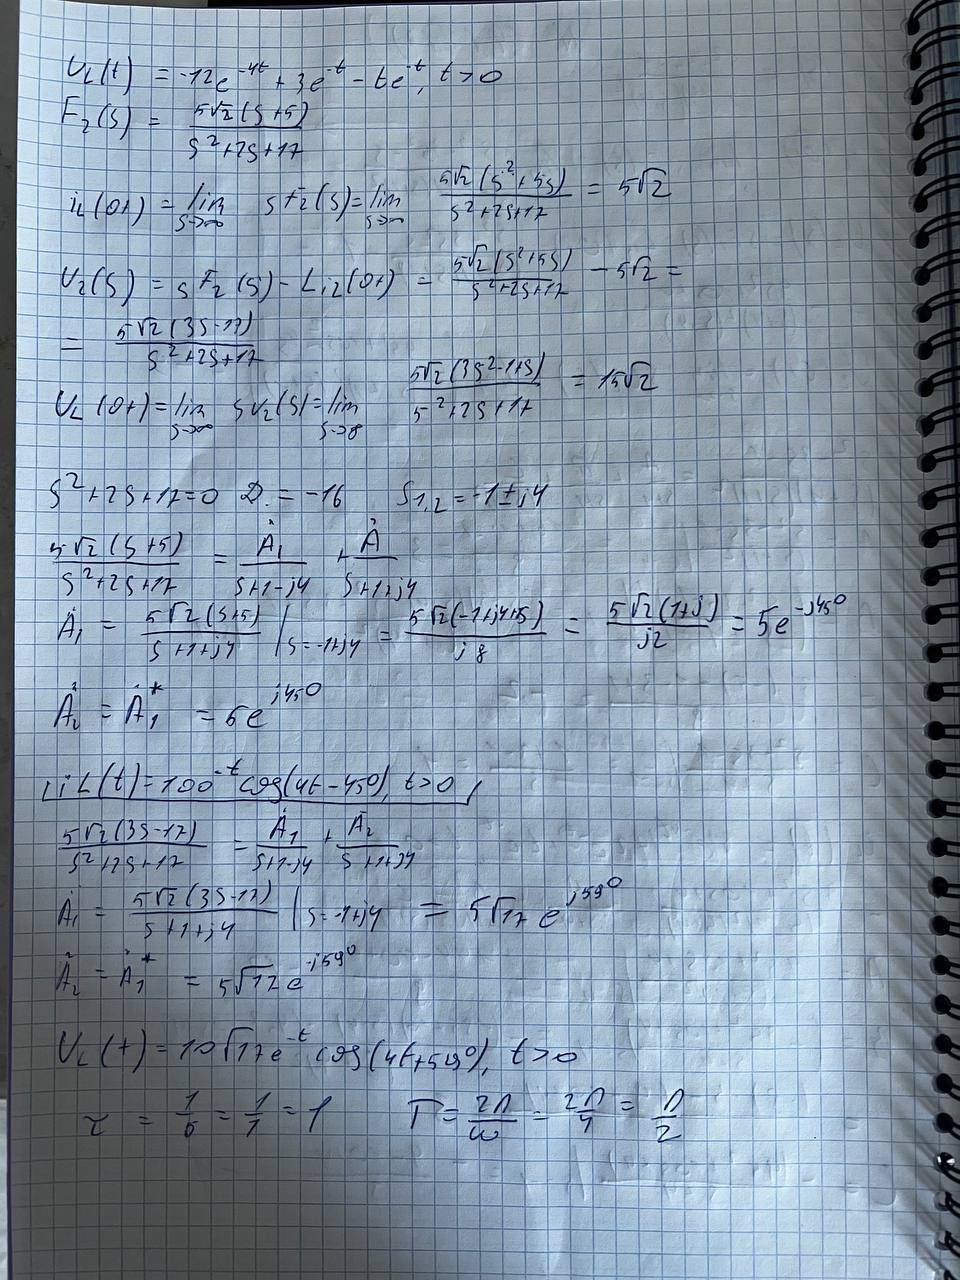 U_L(t) = -12e^{-4t} + 3e^{-t} - te^{-t}, t>0
F_2(s) = \frac{5√2(s+5)}{s^2+2s+17}
i_L(0+) = lim_{s→∞} sF_2(s) = lim_{s→∞} \frac{5√2(s^2+5s)}{s^2+2s+17} = 5√2
U_2(s) = sF_2(s) - Li_2(0+) = \frac{5√2(s^2+5s)}{s^2+2s+17} - 5√2 =
= \frac{5√2(3s-17)}{s^2+2s+17}
U_L(0+) = lim_{s→∞} sU_2(s) = lim_{s→∞} \frac{5√2(3s^2-17s)}{s^2+2s+17} = 15√2
s^2+2s+17=0 D. = -16 s_{1,2} = -1±j4
\frac{5√2(s+5)}{s^2+2s+17} = \frac{Ȧ_1}{s+1-j4} + \frac{Ȧ}{s+1+j4}
Ȧ_1 = \frac{5√2(s+5)}{s+1+j4} |_{s=-1+j4} = \frac{5√2(-1+j4+5)}{j8} = \frac{5√2(1+j)}{j2} = 5e^{-j45°}
Ȧ_2 = Ȧ_1^* = 5e^{j45°}
i_L(t) = 10e^{-t} cos(4t-45°), t>0
\frac{5√2(3s-17)}{s^2+2s+17} = \frac{Ȧ_1}{s+1-j4} + \frac{Ȧ_2}{s+1+j4}
Ȧ_1 = \frac{5√2(3s-17)}{s+1+j4} |_{s=-1+j4} = 5√17 e^{j59°}
Ȧ_2 = Ȧ_1^* = 5√17 e^{-j59°}
U_L(t) = 10√17e^{-t} cos(4t+59°), t>0
τ = \frac{1}{δ} = \frac{1}{1} = 1 T = \frac{2π}{ω} = \frac{2π}{4} = \frac{π}{2}